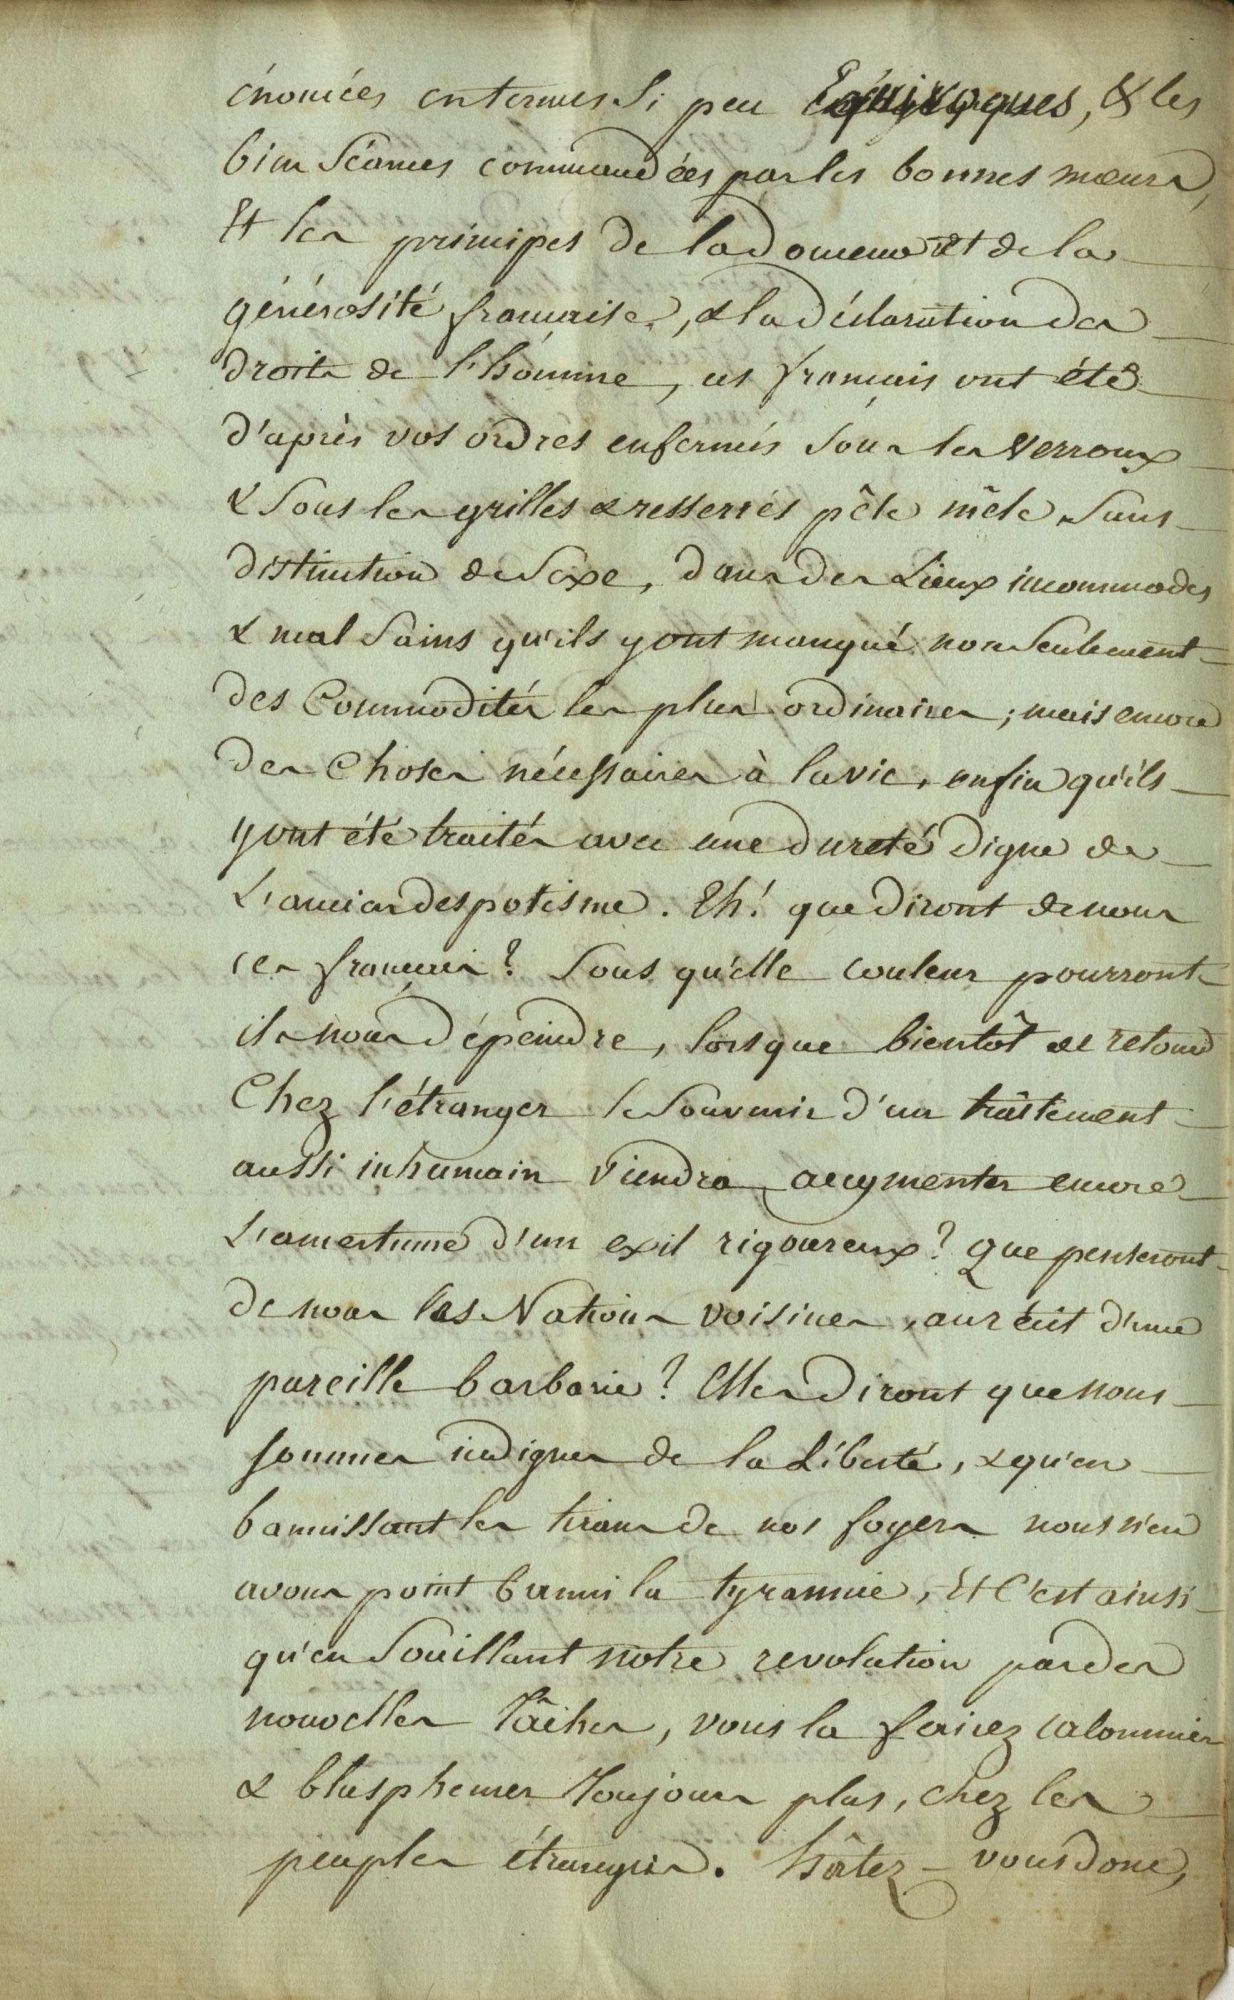 énoncées en termes si peu Equivoques, & les
bien séances commandées par les bonnes mœurs,
Et les principes de la douceur et de la
générosité française, & la déclaration des
droits de l'homme, ces français ont été
d'après vos ordres enfermés sous les verroux
& sous les grilles & resserrés pêle mêle, sans
distinction de sexe, dans des Lieux incommodes
& mal sains qu'ils y ont manqué non seulement
des Commodités les plus ordinaires ; mais encore
des choses nécessaires à la vie, enfin qu'ils
y ont été traités avec une dureté digne de
L'ancien despotisme. Eh! que diront de nous
ces français? Sous qu'elle couleur pourront
ils nous dépeindre, lorsque bientôt de retour
Chez l'étranger le souvenir d'un traitement
aussi inhumain viendra augmenter encore
L'amertume d'un exil rigoureux? que penseront
de nous les Nations voisines, au récit d'une
pareille barbarie? Elles diront que nous
sommes indignes de la Liberté, & qu'en
bannissant les tirans de nos foyers nous n'en
avons point banni la tyrannie, Et C'est ainsi
qu'en souillant notre revolution par des
nouvelles tâches, vous la fairez calomnier
& blasphemer toujours plus, chez les
peuples étrangers. hâtez-vous donc,